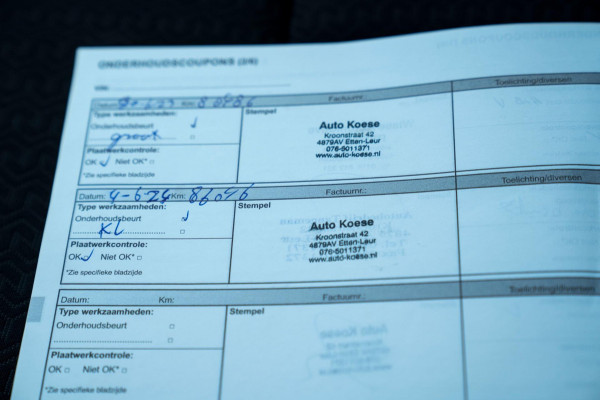 ONDERHOUDSCOUPONS (2/4)
Km: Factuurnr.: Toelichting/diversen
Type werkzaamheden: Stempel
Onderhoudsbeurt
groot
Plaatwerkcontrole:
OK Niet OK*
*Zie specifieke bladzijde
Auto Koese
Kroonstraat 42
4879AV Etten-Leur
076-5011371
www.auto-koese.nl
Datum: 4-6-24 Km: 86046 Factuurnr.: Toelichting/diversen
Type werkzaamheden: Stempel
Onderhoudsbeurt
KL
Plaatwerkcontrole:
OK Niet OK*
*Zie specifieke bladzijde
Auto Koese
Kroonstraat 42
4879AV Etten-Leur
076-5011371
www.auto-koese.nl
Datum: Km: Factuurnr.: Toelichting/diversen
Type werkzaamheden: Stempel
Onderhoudsbeurt
Plaatwerkcontrole:
OK Niet OK*
*Zie specifieke bladzijde